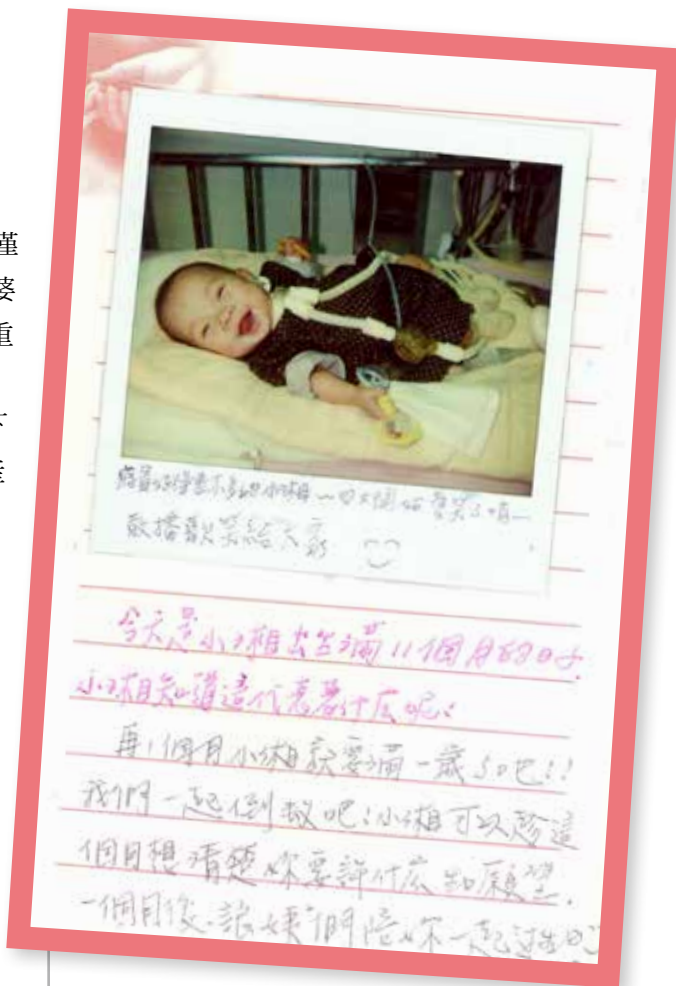 僅
婆
重
小湘～
散播歡笑給大家
今天是小湘出生滿11個月的日子.
小湘知道這代表著什么呢?
再1個月小湘就要滿一歲了吧!!
我們一起倒數吧!小湘可以趁這
個月想清楚妳要許什么的願望.
一個月後.讓姨"們陪妳一起過生日